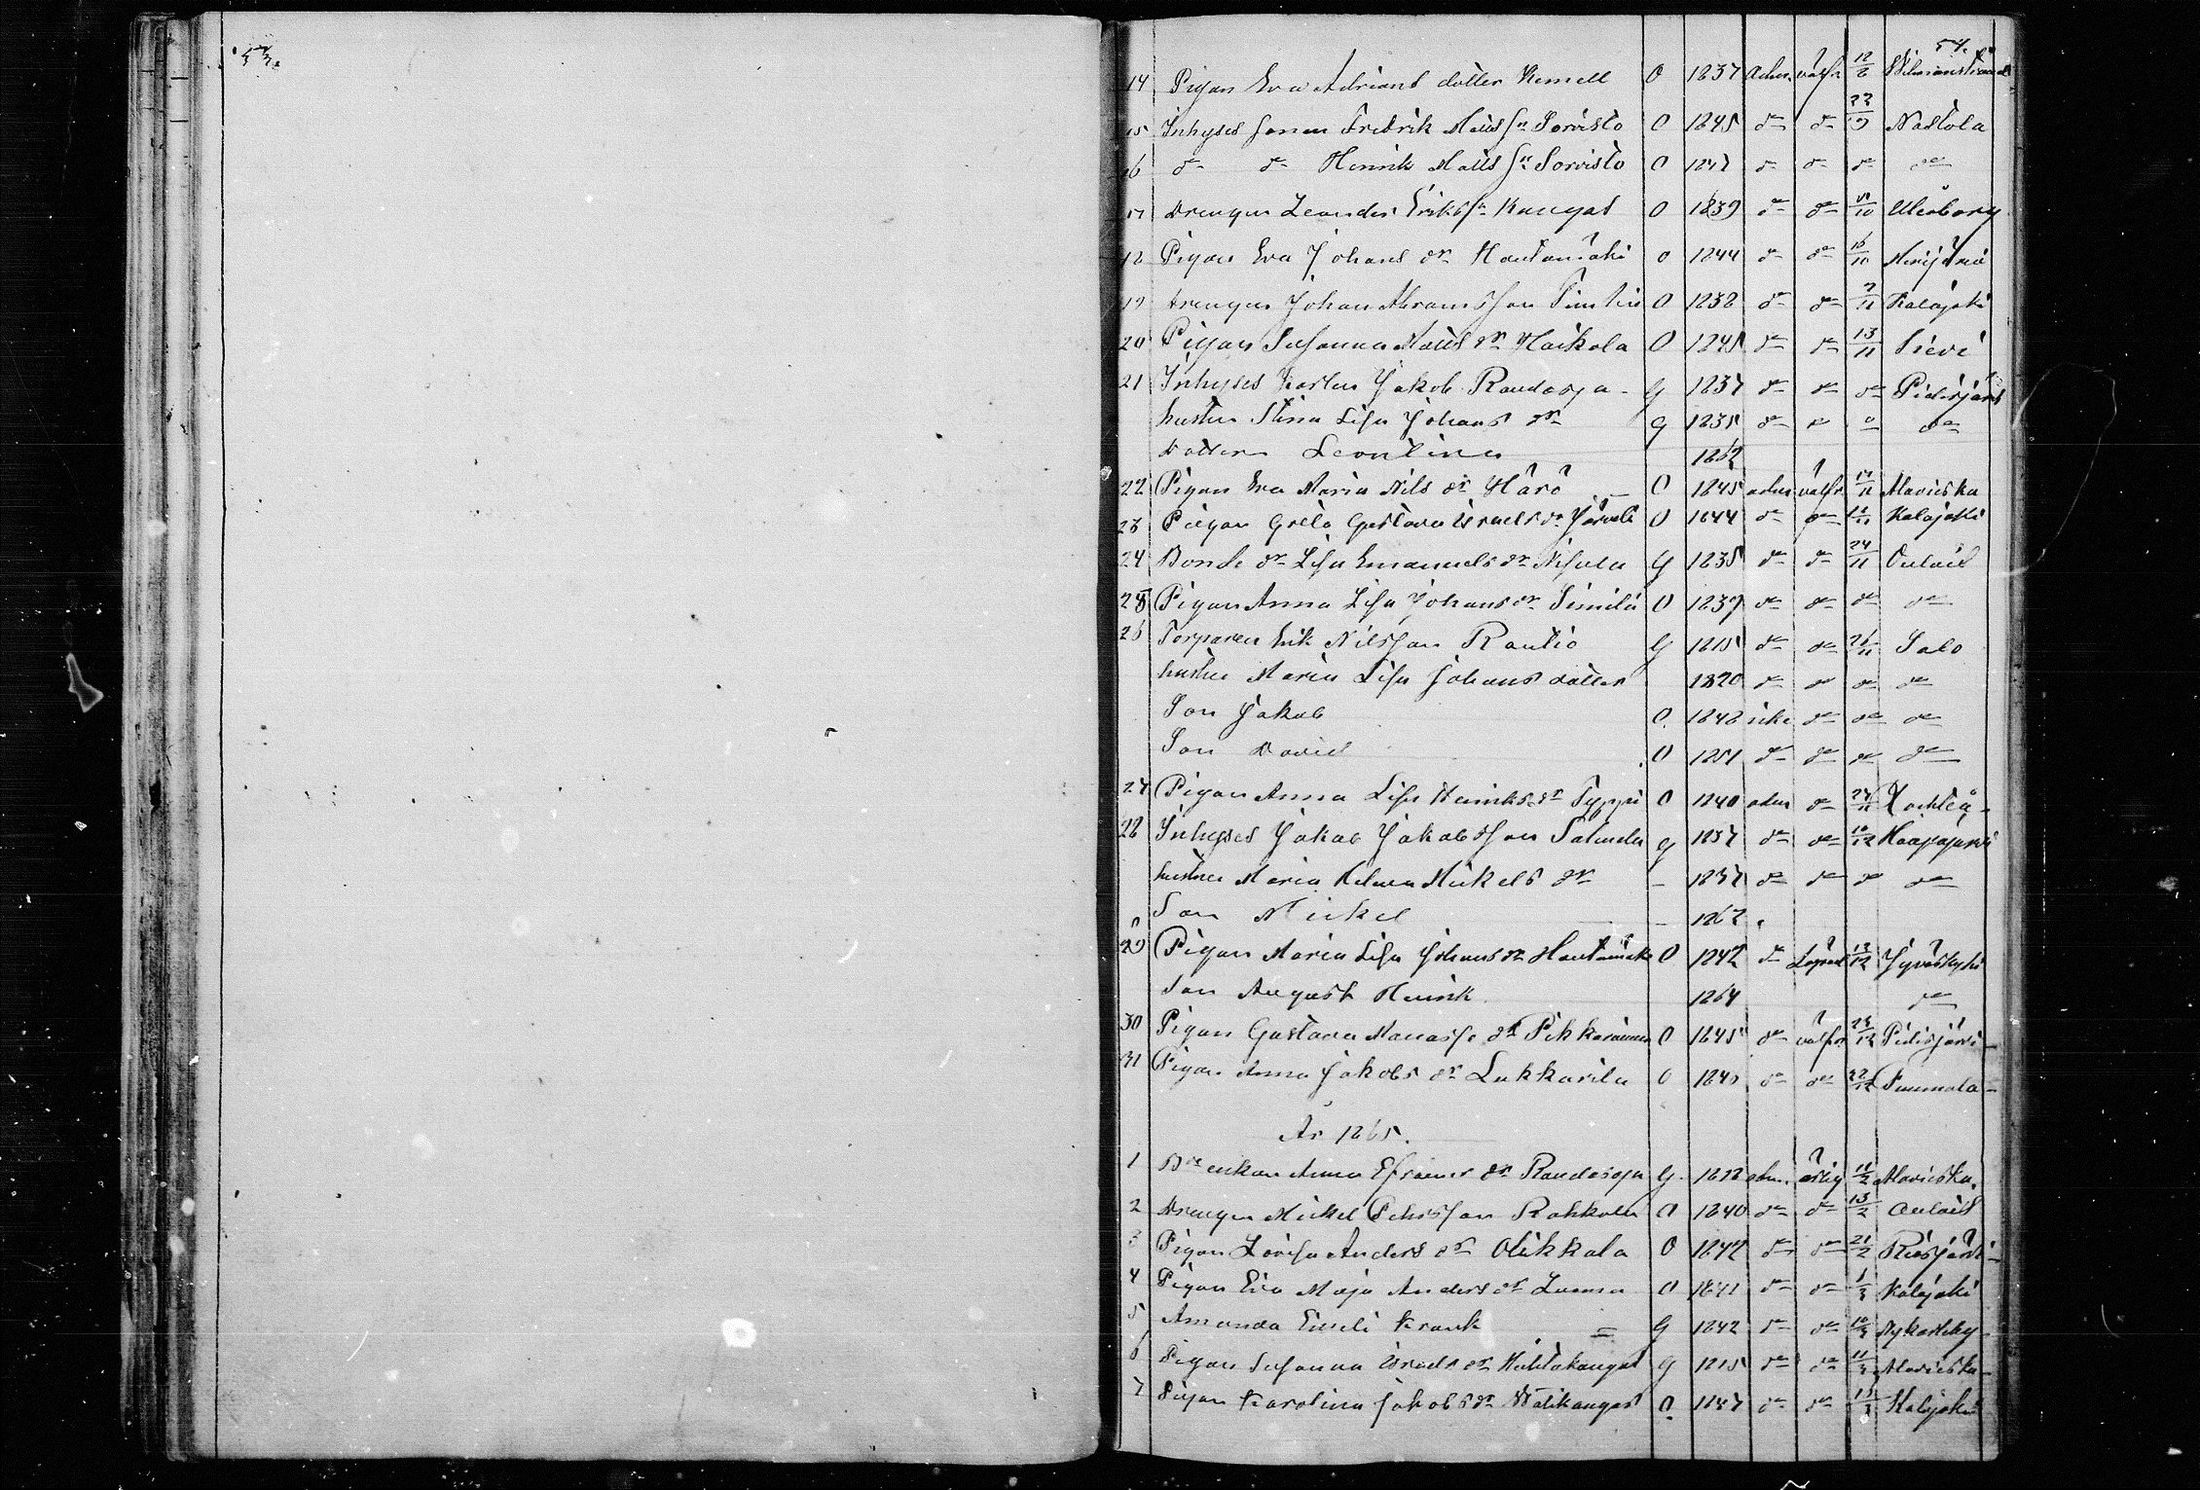 53.
54.
14 Pigan Eva Adrians dotter Kemell O 1837 adm. välfr. 12/8
15 Inhyses sonen Fredrik Matts sn Sorvisto O 1845 do do 22/9 Nastola
16 do do Henrik Matts sn Sorvisto O 1847 do do do do
17 Drengen Leander Eriks sn Kangas O 1839 do do /10 Uleåborg
18 Pigan Eva Johans dr Hautamäki O 1844 do do 16/10
19 Drengen Johan Abramsson O 1838 do do 7/11 Kalajoki
20 Pigan Susanna Matts dr Maikola O 1845 do do 13/11 Sievi
21 Inhyses Karlen Jakob Raudasoja G 1837 do do do Pidisjärvi
hustru Stina Lisa Johans dr G 1835 do do do do
Dotter Leontina 1862
22 Pigan Eva Maria Nils dr Härö O 1845 adm välfr. 17/11 Alavieska
23 Pigan Greta Gustava Israels dr O 1844 do do /11 Kalajoki
24 Bonde dr Lisa Emanuels dr G 1835 do do 24/11 Oulais
25 Pigan Anna Lisa Johans dr Similä O 1837 do do do do
26 Torparen Erik Nilsson Rautio G 1815 do do 26/11 Salo
hustru Maria Lisa Johans dotter 1820 do do do do
Son Jakob O. 1848 icke do do do
Son David O 1851 do do do do
27 Pigan Anna Lisa Henriks dr Typpö O 1840 adm do 27/11 Lochteå
28 Inhyses Jakob Jakobsson G 1837 do do 10/12 Haapajärvi
hustru Maria Helena Mickels dr - 1837 do do do do
Son Mickel - 1862
29 Pigan Maria Lisa Johans dr Hautamäki O 1842 do 13/12 Jyväskylä
Son August Henrik 1864 do
30 Pigan Gustava Manasse dr Pikkarainen O 1845 do välfr 23/12 Pidisjärvi
31 Pigan Anna Jakobs dr Lukkarila O 1840 do do 22/12 Pummala
År 1865.
1 Bde enkan Anna Efraims dr Raudasoja G. 18 adm. ärlig 11/2 Alavieska.
2 Drengen Mickel Pehrsson Rahkola O 1840 do do 13/2 Oulais
3 Pigan Lovisa Anders dr Olikkala O 1842 do do 21/2 Reisjärvi
4 Pigan Eva Maja Anders dr O 1841 do do 1/3 Kalajoki
5 Amanda Emeli Krank = G 1842 do do 10/3 Nykarleby
6 Pigan Susanna Israels dr G 1815 do do 11/3 Alavieska
7 Pigan Karolina Jakobs dr O. 1847 do do 13/3 Kalajoki